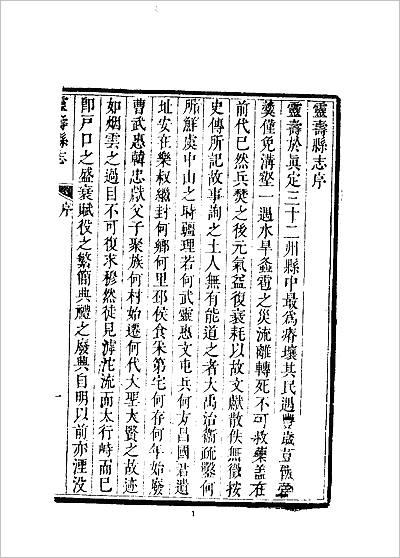 靈壽縣志序
靈壽於眞定三十二州縣中最爲瘠壤其民遇豐歲豆飯藿
羮僅免溝壑一遇水旱螽雹之災流離轉死不可救藥葢在
前代已然兵焚之後元氣益復衰耗以故文獻散佚無徵按
史傳所記故事詢之土人無有能道之者大禹治衞疏鑿何
所鮮虞中山之時疆理若何武靈惠文屯兵何方昌國君遺
址安在樂叔繼封何鄉何里邳侯食采第宅何存何年始廢
曹武惠韓忠獻父子聚族何村始遷何代大聖大賢之故迹
如烟雲之過目不可復求穆然徒見滹沱流而太行峙而已
卽戸口之盛衰賦役之繁簡典禮之廢興自明以前亦湮没
靈壽縣志 序 一
1